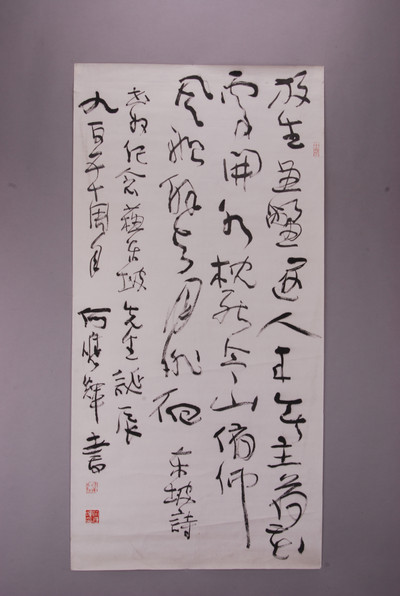 放生魚鱉逐人来無主荷花
到處開水枕能令山俯仰
風船解与月徘徊 东坡詩
书为纪念蘇东坡先生誕辰
九百五十周年 何應輝書